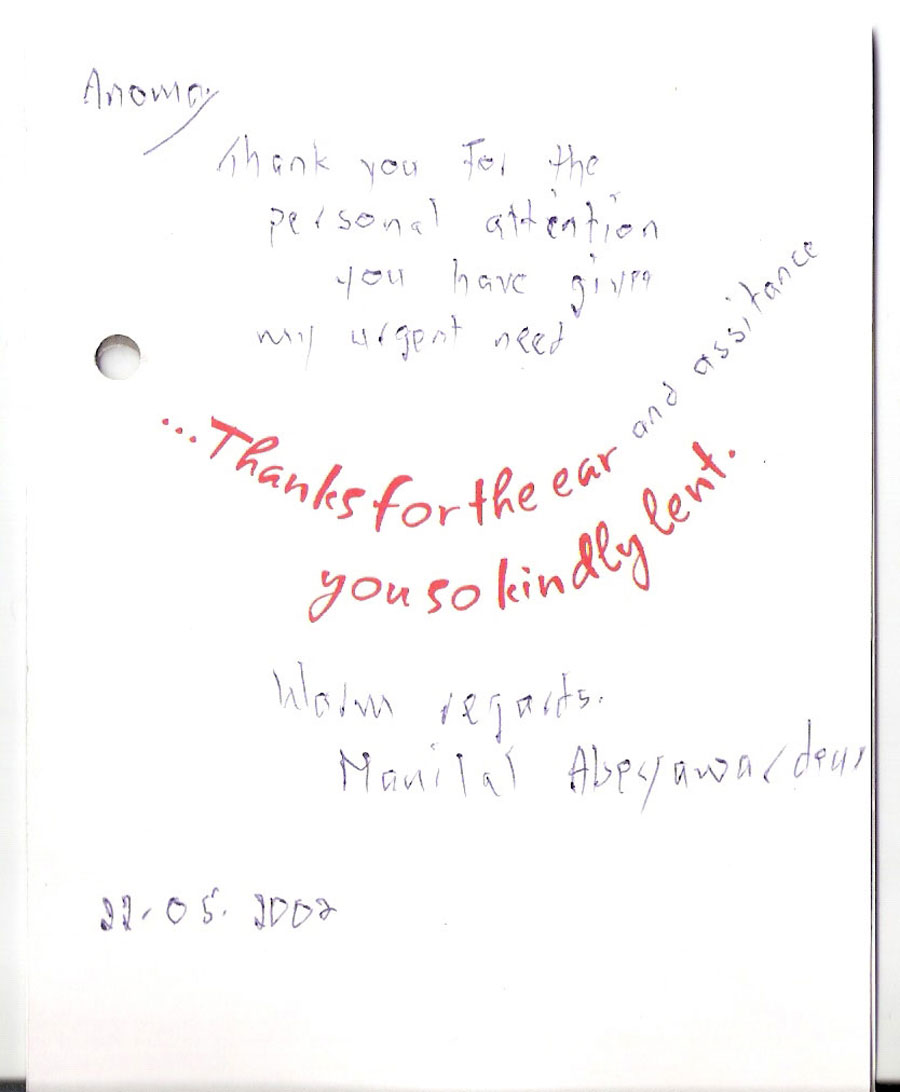 Anoma,
Thank you for the
personal attention
you have given
my urgent need
...Thanks for the ear and assitance
you so kindly lent.
Warm regards.
Manilal
22.05.2002